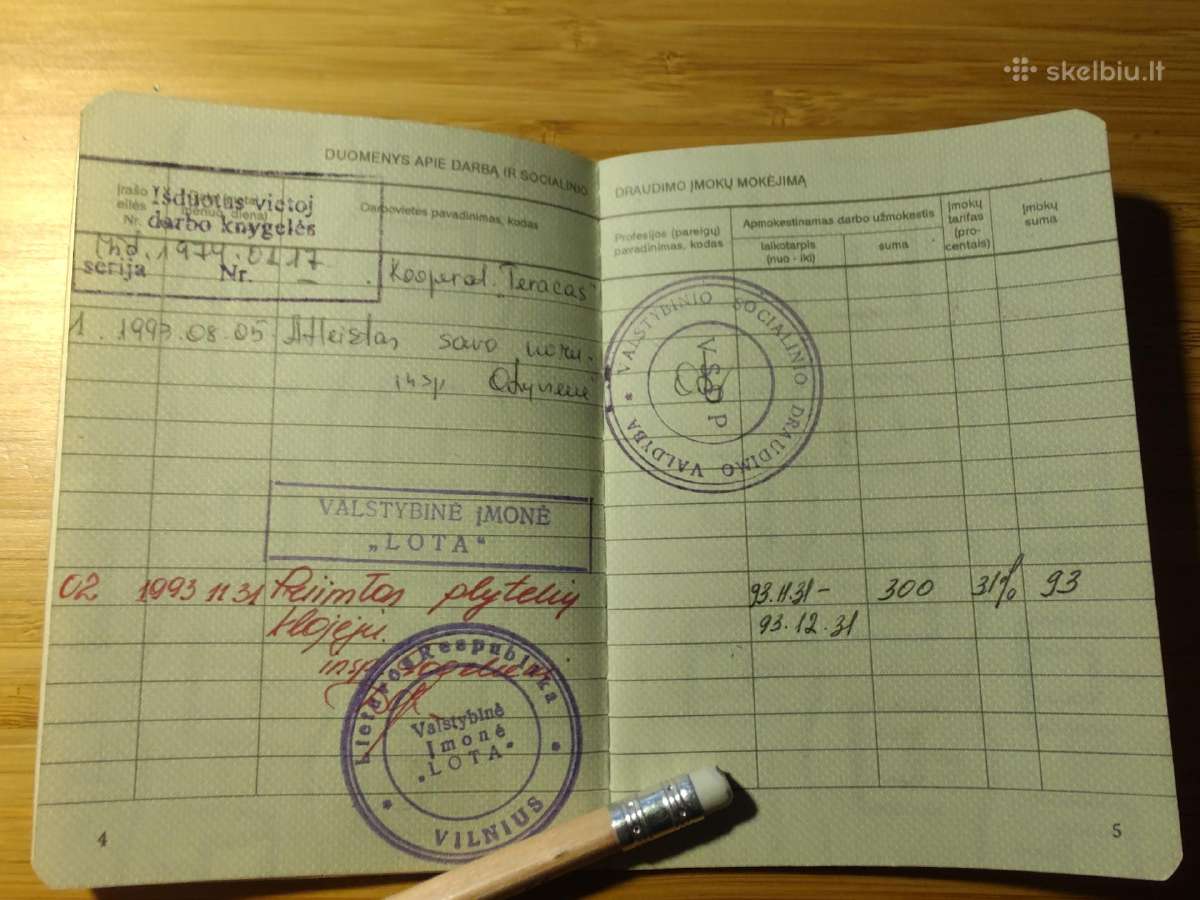 skelbiu.lt
DUOMENYS APIE DARBĄ IR SOCIALINIO DRAUDIMO ĮMOKŲ MOKĖJIMĄ
Įrašo eilės Nr.
Darbovietės pavadinimas, kodas
Išduotas vietoj
darbo knygelės
1974.01.17
serija Nr. –
Kooperat. „Teracas"
1. 1993.08.05 Atleistas savo noru.
insp
VALSTYBINĖ ĮMONĖ
„LOTA"
02 1993 11 31 Priimtas plytelių
klojėju.
insp.
Lietuvos Respublika
Valstybinė
Įmonė
„LOTA"
VILNIUS
4
Profesijos (pareigų) pavadinimas, kodas
Apmokestinamas darbo užmokestis
laikotarpis (nuo - iki)
suma
Įmokų tarifas (procentais)
Įmokų suma
VALSTYBINIO SOCIALINIO DRAUDIMO VALDYBA
VSDP
93.11.31 – 300 31% 93
93.12.31
5